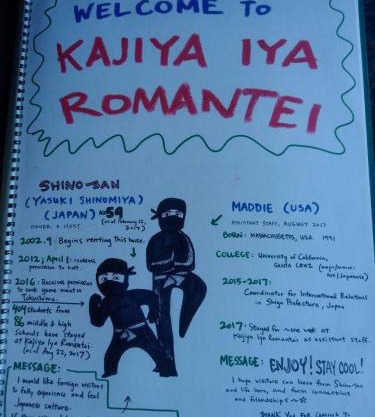 WELCOME TO
KAJIYA IYA
ROMANTEI
SHINO-SAN
(YASUKI SHINOMIYA)
(JAPAN) 59
(as of February 22,
2017)
OWNER & HOST
2002.9: Begins renting this house.
2012; April 1: receives
permission to host.
2016: Receives permission
to cook game meat in
Tokushima.
students from
86 middle & high
schools have stayed
at Kajiya Iya Romantei.
(as of Aug 22, 2017)
MESSAGE:
I would like foreign visitors
to fully experience and feel
Japanese culture.
MADDIE (USA)
ASSISTANT STAFF, AUGUST 2017
BORN: MASSACHUSETTS, USA 1991
COLLEGE: University of California,
SANTA CRUZ
2015-2017:
Coordinator for International Relations
in Shiga Prefecture, Japan
2017: Stayed for one week at
Kajiya Iya Romantei as assistant staff.
MESSAGE: ENJOY! STAY COOL!
I hope visitors can learn from Shino-san
and his home, and form connections
and friendships
THANK YOU FOR